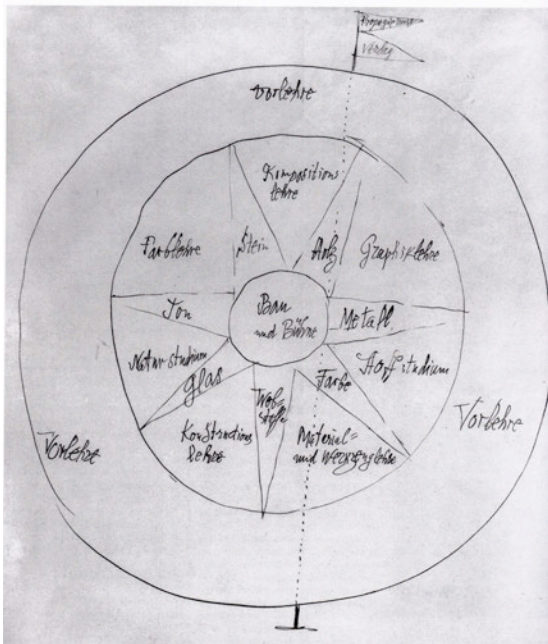 Propagierung
Verlag
Vorlehre
Kompositions
lehre
Farblehre
Stein
Holz
Graphiklehre
Ton
Bau
und Bühne
Metall
Naturstudium
Glas
Web-
stoffe
Farbe
Stoffstudium
Konstructions
lehre
Material=
und Werkzeuglehre
Vorlehre
Vorlehre